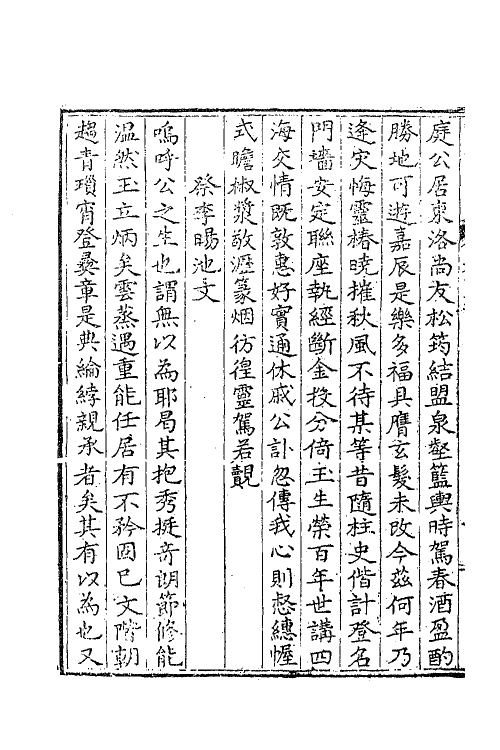 庭公居東洛尚友松筠結盟泉壑籃輿時駕春酒盈酌
勝地可遊嘉辰是樂多福具膺玄髮未改今茲何年乃
逢灾悔靈椿曉摧秋風不待某等昔隨柱史偕計登名
門墻安定聯座執經斷金投分倚玉生榮百年世講四
海交情既敦惠好實通休戚公訃忽傳我心則惄繐幄
式瞻椒漿敬瀝篆烟彷徨靈駕若覿
祭李暘池文
嗚呼公之生也謂無以為耶曷其抱秀挺奇朗節修能
温然玉立炳矣雲蒸遇重能任居有不矜固已文階朝
趨青瑣宵登彛章是典綸綍親承者矣其有以為也又